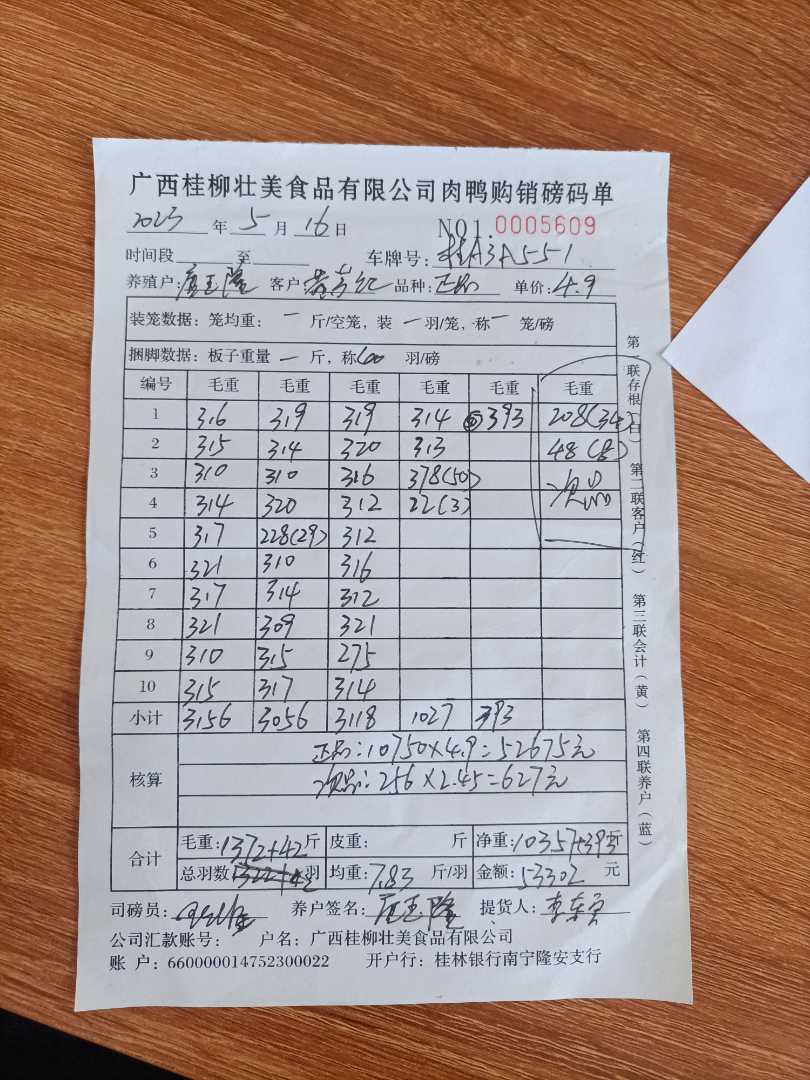 广西桂柳壮美食品有限公司肉鸭购销磅码单
2023 年 5 月 16 日 NO1.0005609
时间段 至 车牌号: 桂A3A551
养殖户: 客户: 品种: 正品 单价: 4.9
装笼数据: 笼均重: 一 斤/空笼, 装 一 羽/笼, 称 一 笼/磅
捆脚数据: 板子重量 一 斤, 称 羽/磅
编号 毛重 毛重 毛重 毛重 毛重 毛重
1 316 319 319 314 393 208(34)
2 315 314 320 313 48(8)
3 310 310 316 378(50) 次品
4 314 320 312 22(3)
5 317 228(29) 312
6 321 310 316
7 317 314 312
8 321 309 321
9 310 315 275
10 315 317 314
小计 3156 3056 3118 1027 393
核算 正品:10750×4.9=52675元
次品:256×2.45=627元
合计 毛重: 1372+42 斤 皮重: 斤 净重: 10357+393 斤
总羽数 羽 均重: 7.83 斤/羽 金额: 53302 元
司磅员: 养户签名: 提货人:
公司汇款账号: 户名: 广西桂柳壮美食品有限公司
账 户: 660000014752300022 开户行: 桂林银行南宁隆安支行
第一联存根(白) 第二联客户(红) 第三联会计(黄) 第四联养户(蓝)